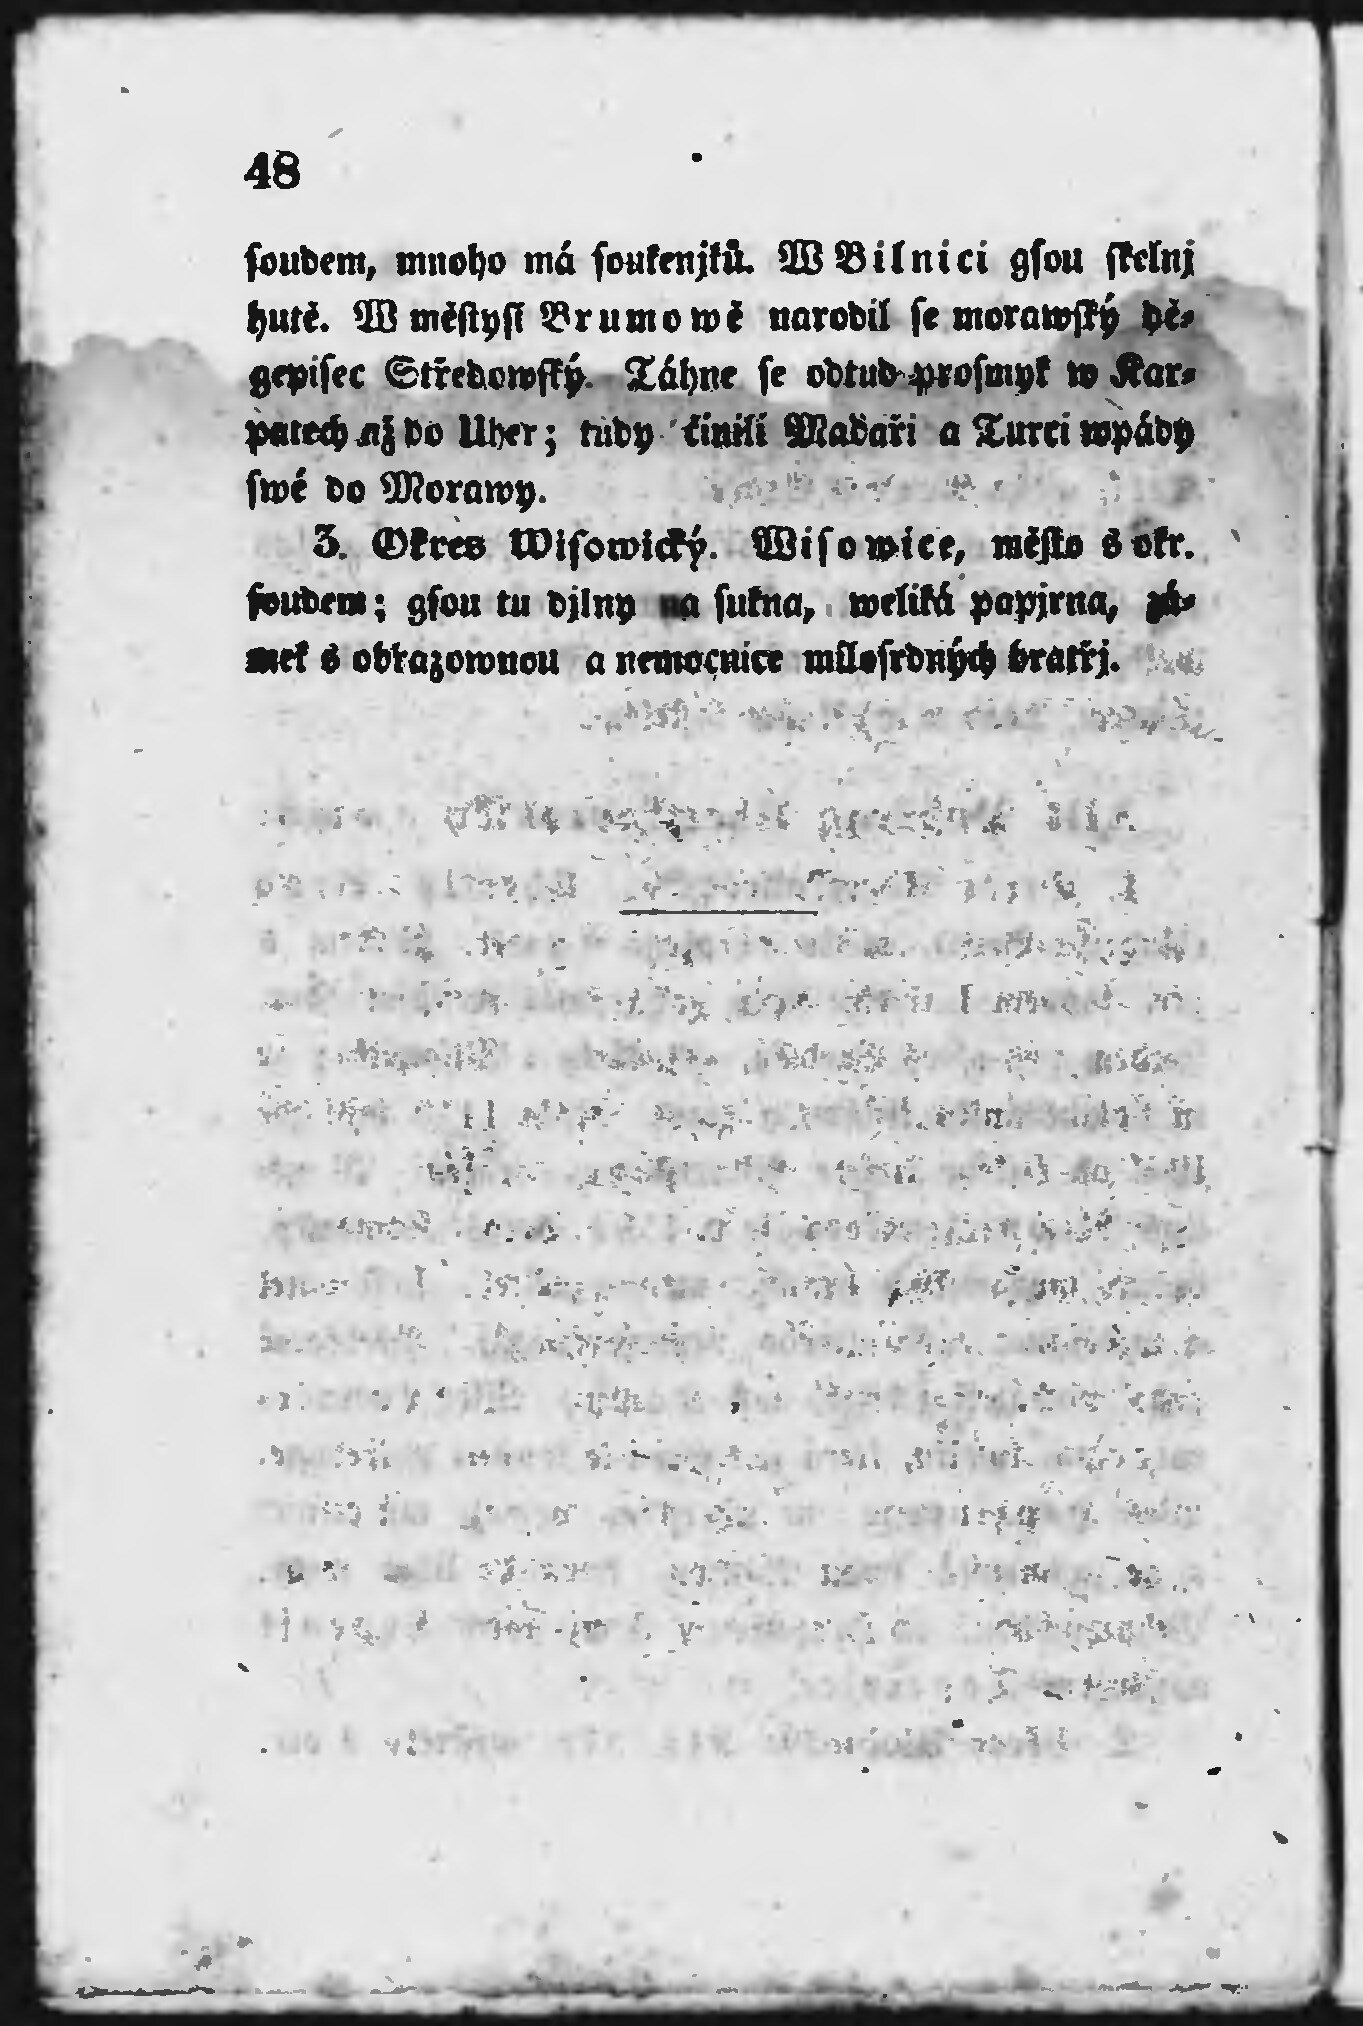 48
saudem, mnoho má soukenjků. W Bilnici gsau skelnj
hutě. W městysi Brumowě narodil se morawský dě-
gepisec Středowský. Táhne se odtud prosmyk w Kar-
patech až do Uher; tudy činili Madaři a Turci wpády
swé do Morawy.
3. Okres Wisowický. Wisowice, město s okr.
soudem; gsou tu djlny na sukna, weliká papjrna, zá-
mek s obrazownou a nemocnice milosrdných bratřj.